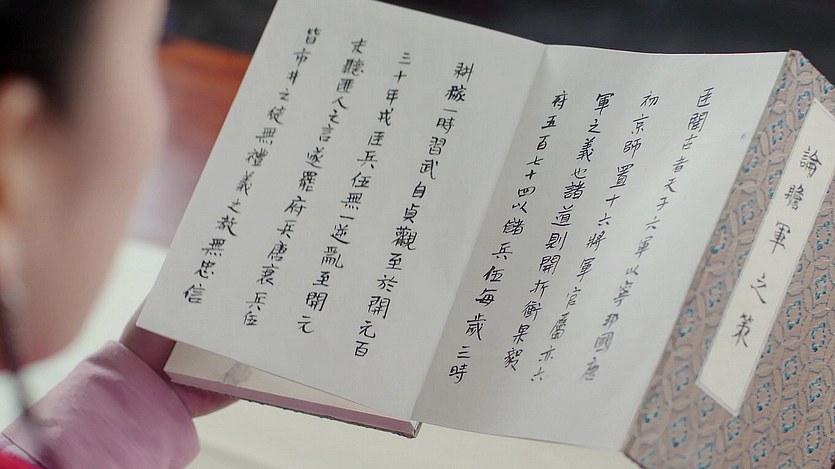 論瞻軍之策
臣聞古者天子六軍以等邦國唐
初京師置十六將軍官屬亦六
軍之義也諸道則開折衝果毅
府五百七十四以儲兵伍每歲三時
耕稼一時習武自貞觀至於開元百
三十年戎臣兵伍無一逆亂至開元
末聽匪人之言遂罷府兵唐衰兵伍
皆市井之徒無禮義之教無忠信